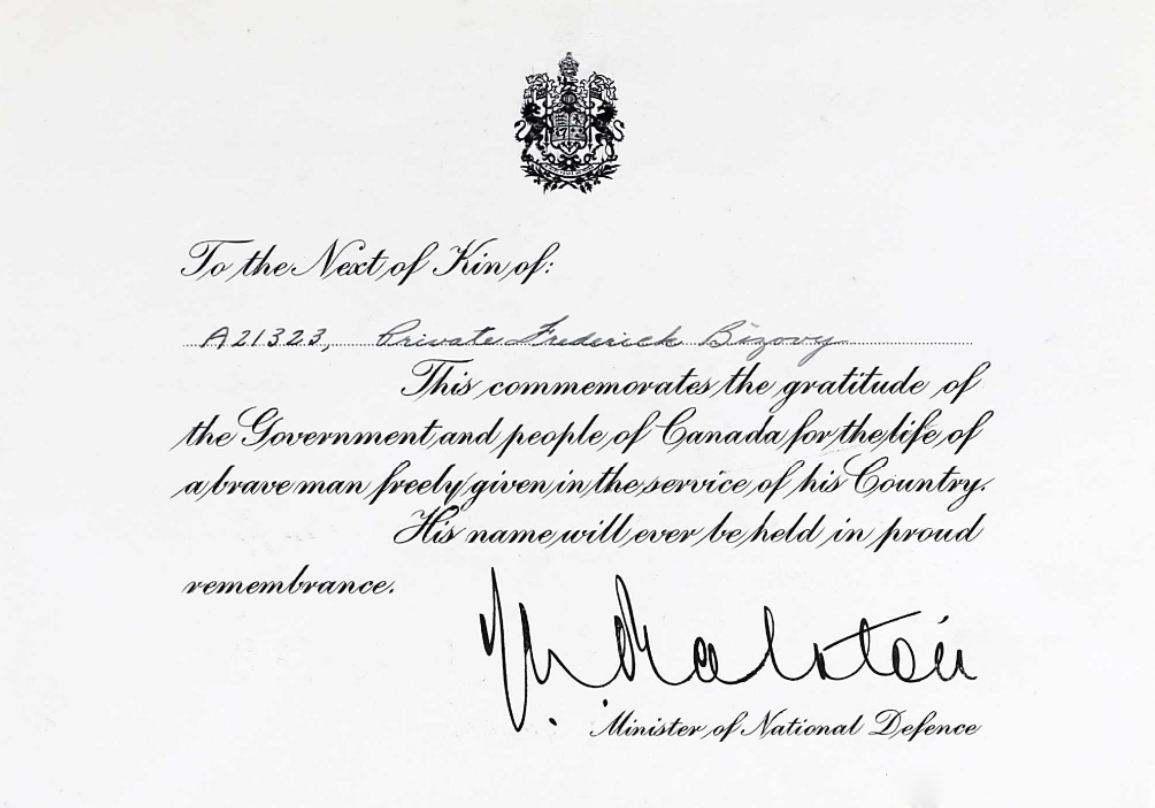 To the Next of Kin of:
A21323, Private Frederick Bizovy
This commemorates the gratitude of
the Government and people of Canada for the life of
a brave man freely given in the service of his Country.
His name will ever be held in proud
remembrance.
Ralston
Minister of National Defence